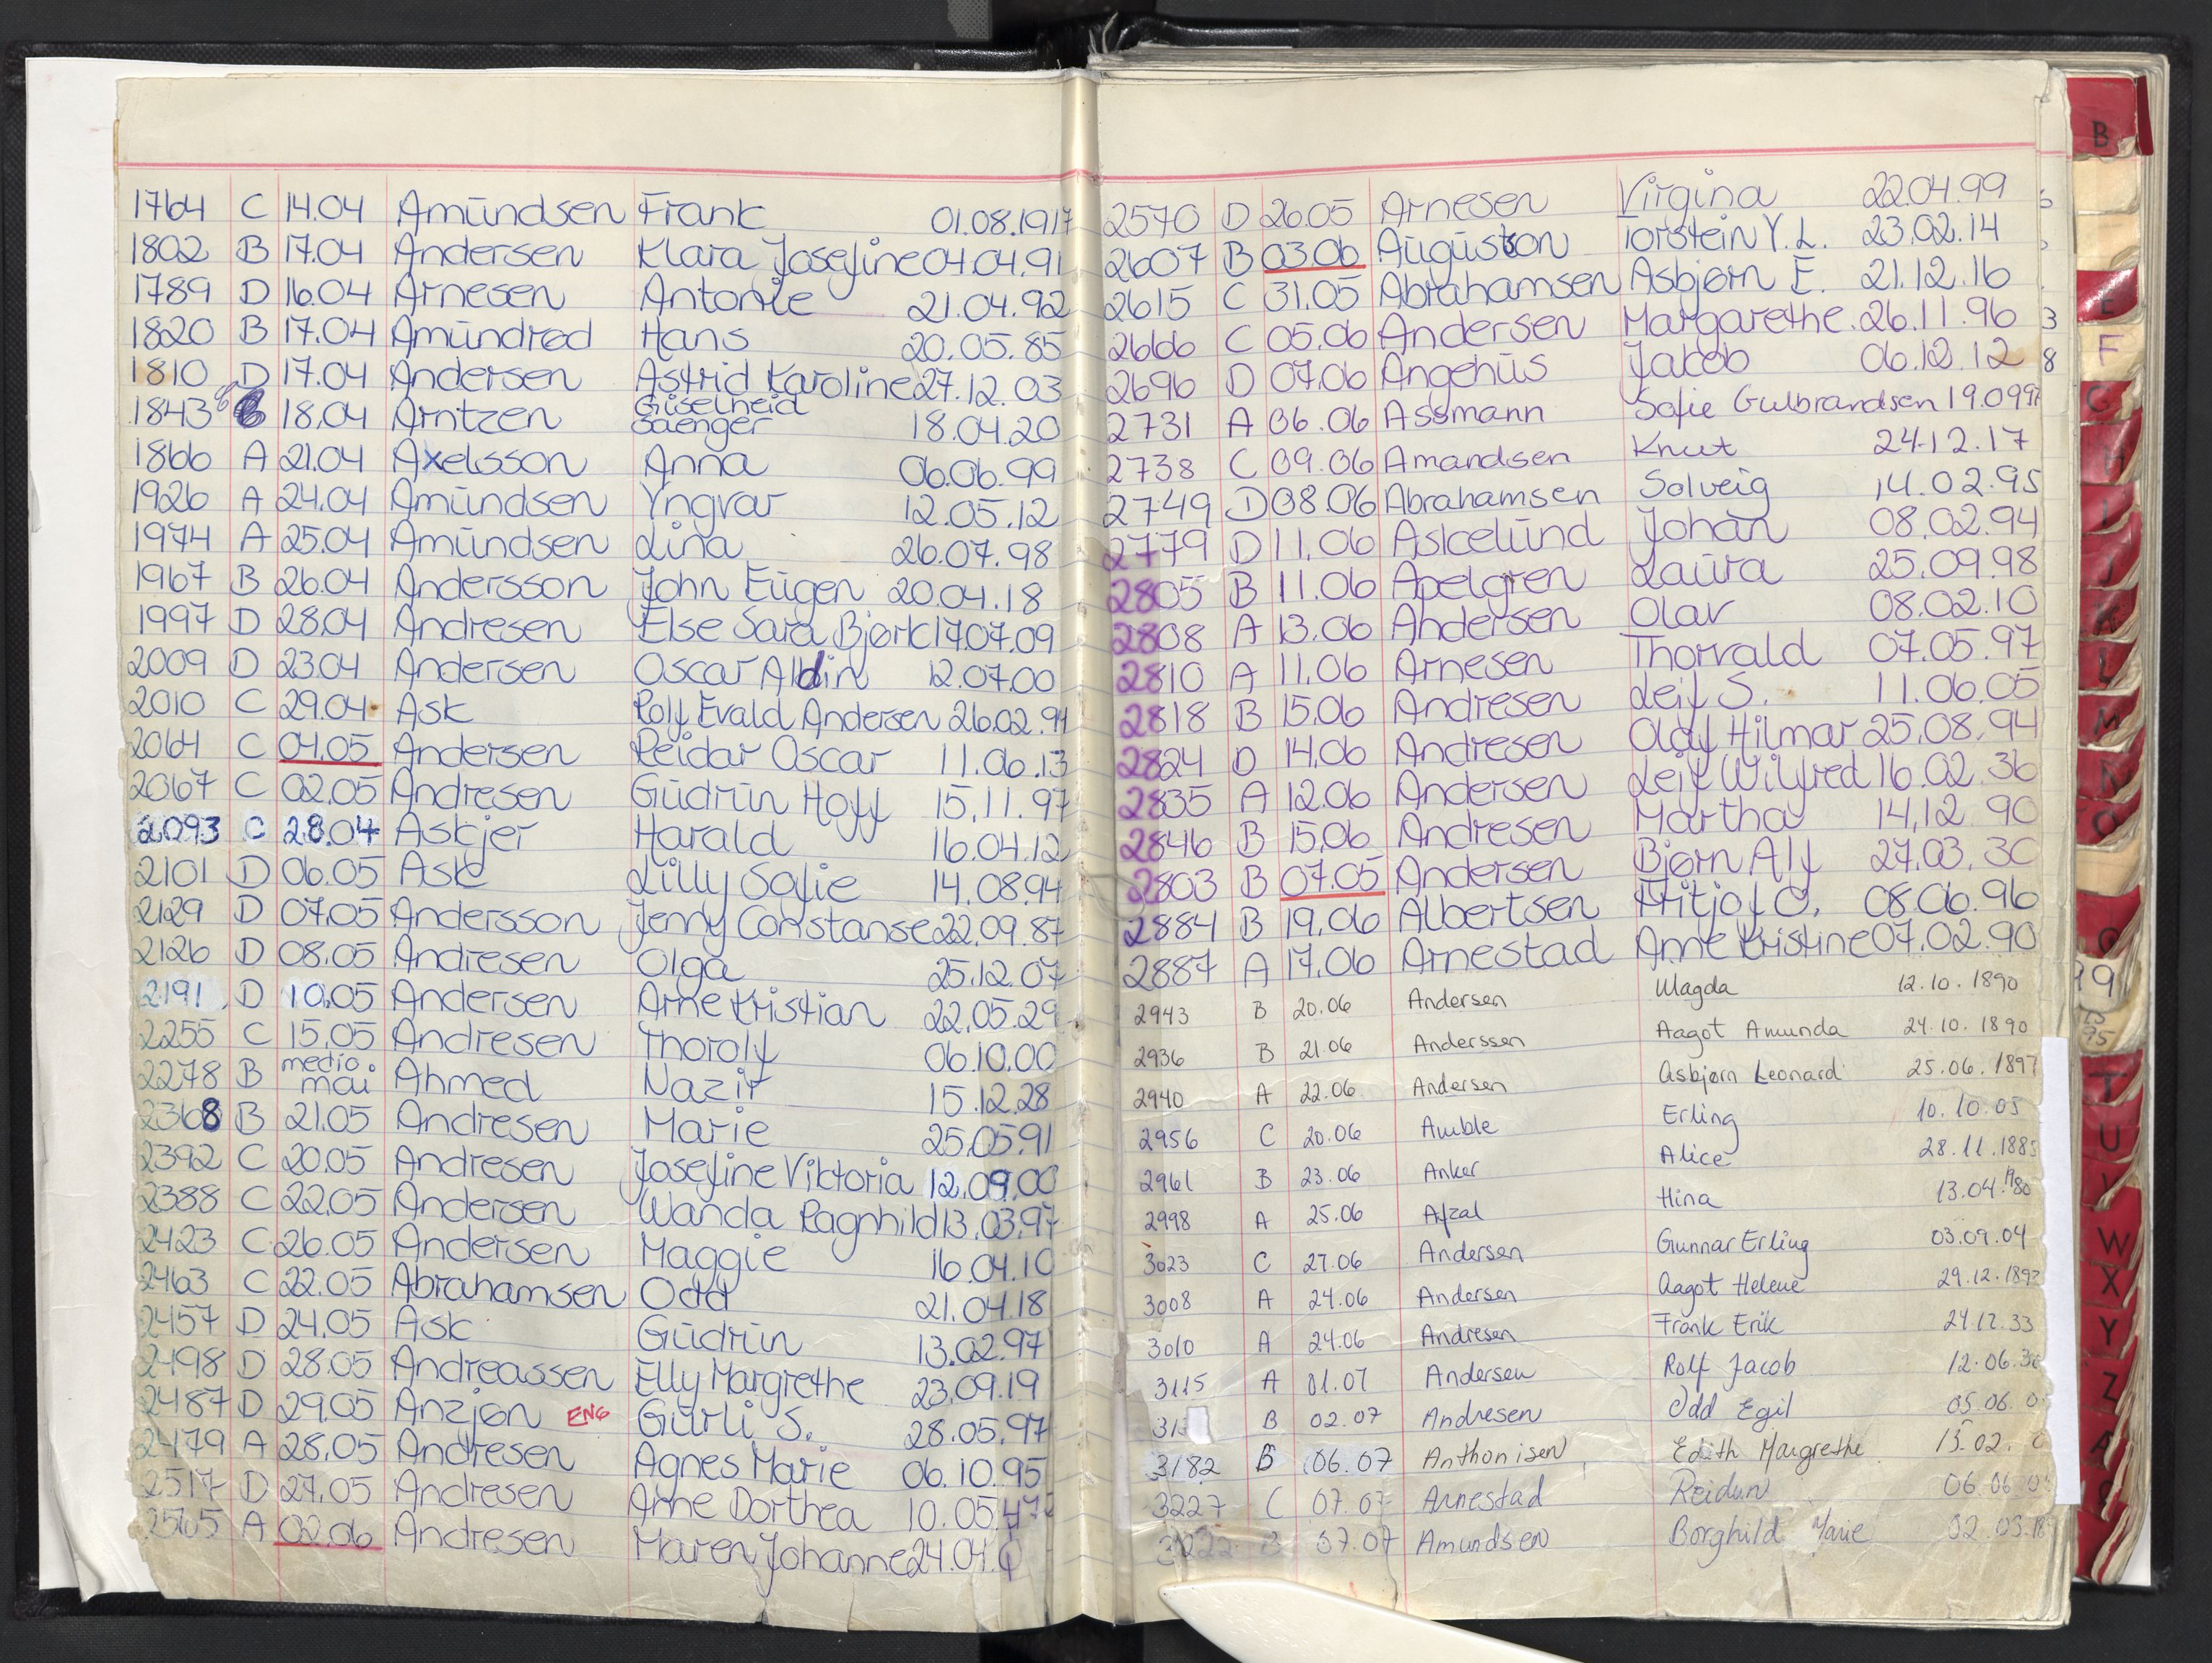 1764 C 14.04 Amundsen Frank 01.08.1917
1802 B 17.04 Andersen Klara Josefine 04.04.91
1789 D 16.04 Arnesen Antonie 21.04.92
1820 B 17.04 Amundrød Hans 20.05.85
1810 D 17.04 Andersen Astrid Karoline 27.12.03
1843 B 18.04 Arntzen Giselheid Saenger 18.04.20
1866 A 21.04 Axelsson Anna 06.06.99
1926 A 24.04 Amundsen Yngvar 12.05.12
1974 A 25.04 Amundsen Lina 26.07.98
1967 B 26.04 Andersson John Eugen 20.04.18
1997 D 28.04 Andresen Else Sara Bjørk 17.07.09
2009 D 23.04 Andersen Oscar Aldin 12.07.00
2010 C 29.04 Ask Rolf Evald Andersen 26.02.94
2064 C 04.05 Andersen Reidar Oscar 11.06.13
2067 C 02.05 Andresen Gudrun Hoff 15.11.97
2093 C 28.04 Askjer Harald 16.04.12
2101 D 06.05 Ask Lilly Sofie 14.08.94
2129 D 07.05 Andersson Jenny Constanse 22.09.87
2126 D 08.05 Andresen Olga 25.12.07
2191 D 10.05 Andersen Arne Kristian 22.05.29
2255 C 15.05 Andresen Thorolf 06.10.00
2278 B medio mai Ahmed Nazir 15.12.28
2368 B 21.05 Andresen Marie 25.05.91
2392 C 20.05 Andresen Josefine Viktoria 12.09.00
2388 C 22.05 Andersen Wanda Ragnhild 13.03.97
2423 C 26.05 Andersen Maggie 16.04.10
2463 C 22.05 Abrahamsen Odd 21.04.18
2457 D 24.05 Ask Gudrun 13.02.97
2498 D 28.05 Andreassen Elly Margrethe 23.09.19
2487 D 29.05 Anzjøn ENG Gurli S. 28.05.97
2479 A 28.05 Andresen Agnes Marie 06.10.95
2517 D 27.05 Andresen Anne Dorthea 10.05
2565 A 02.06 Andresen Maren Johanne 24.04
2570 D 26.05 Arnesen Virgina 22.04.99
2607 B 03.06 Auguston Torstein Y. L. 23.02.14
2615 C 31.05 Abrahamsen Asbjørn E. 21.12.16
2666 C 05.06 Andersen Margarethe 26.11.96
2696 D 07.06 Angehus Jacob 06.12.12
2731 A 06.06 Assmann Sofie Gulbrandsen 19.09
2738 C 09.06 Amandsen Knut 24.12.17
2749 D 08.06 Abrahamsen Solveig 14.02.95
2779 D 11.06 Askelund Johan 08.02.94
2805 B 11.06 Apelgren Laura 25.09.98
2808 A 13.06 Andersen Olav 08.02.10
2810 A 11.06 Arnesen Thorvald 07.05.97
2818 B 15.06 Andresen Leif S. 11.06.05
2824 D 14.06 Andresen Olaf Hilmar 25.08.94
2835 A 12.06 Andersen Leif Wilfred 16.02.36
2846 B 15.06 Andresen Martha 14.12.90
2803 B 07.05 Andersen Bjørn Alf 27.03.30
2884 B 19.06 Albertsen Fritjof O. 08.06.96
2887 A 17.06 Arnestad Anne Kristine 07.02.90
2943 B 20.06 Andersen Magda 12.10.1890
2936 B 21.06 Anderssen Aagot Amunda 24.10.1890
2940 A 22.06 Andersen Asbjørn Leonard 25.06.1897
2956 C 20.06 Amble Erling 10.10.05
2961 B 23.06 Anker Alice 28.11.1885
2998 A 25.06 Afzal Hina 13.04.1980
3023 C 27.06 Andersen Gunnar Erling 03.09.04
3008 A 24.06 Andersen Aagot Helene 29.12.189
3010 A 24.06 Andresen Frank Erik 24.12.33
3115 A 01.07 Andersen Rolf Jacob 12.06.3
313 B 02.07 Andresen Odd Egil 05.06.0
3182 B 06.07 Anthonisen Edith Margrethe 15.02.
3227 C 07.07 Arnestad Reidun 06.06.0
3222 B 07.07 Amundsen Borghild Marie 02.03.18
B
E
F
G
H
I
J
K
L
M
N
O
T
U
V
W
X
Y
Z